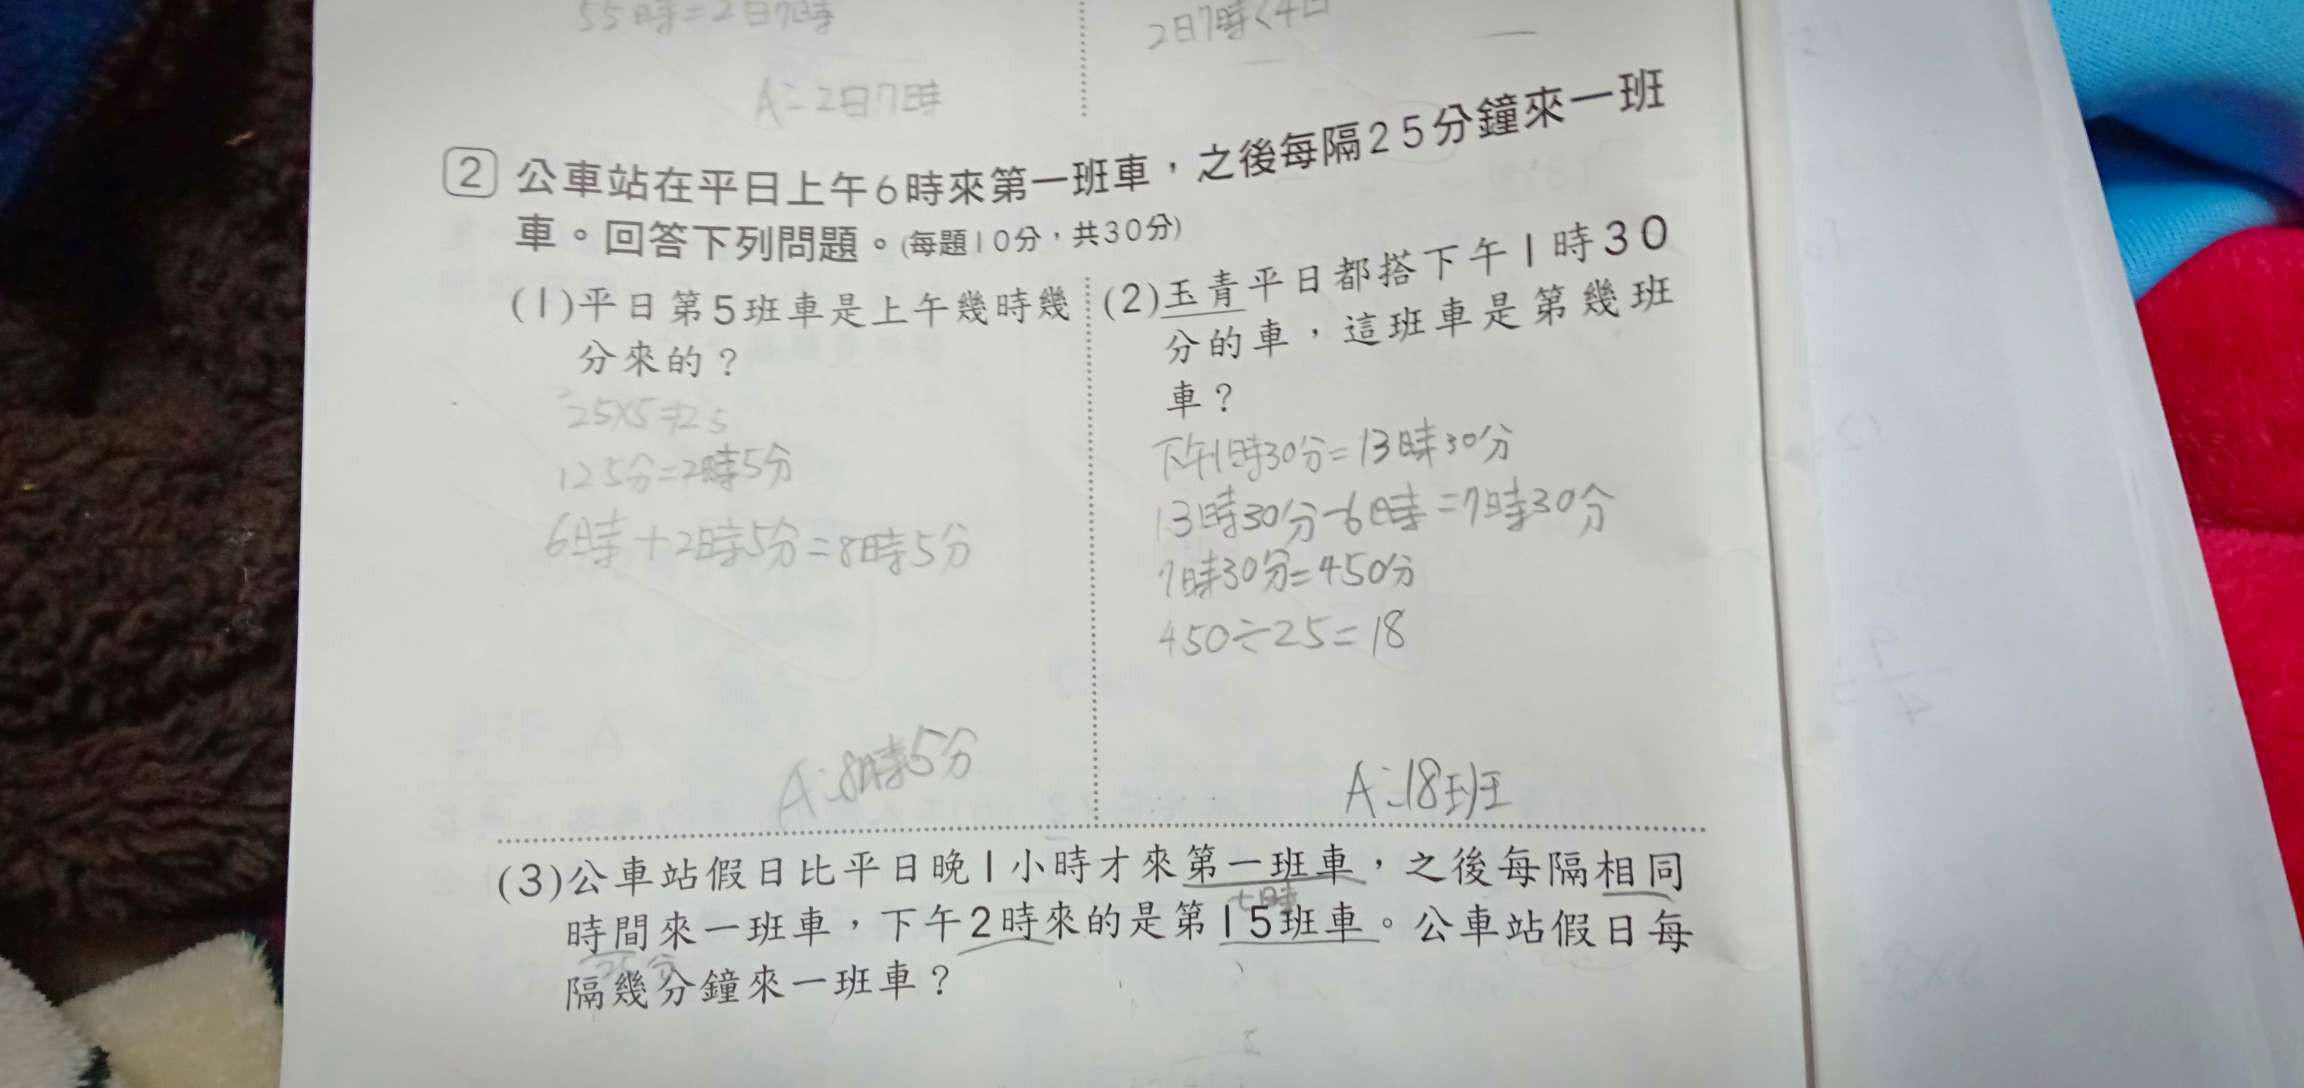 55時=2日7時
2日7時<4日
A:2日7時
2 公車站在平日上午6時來第一班車，之後每隔25分鐘來一班
車。回答下列問題。(每題10分，共30分)
(1)平日第5班車是上午幾時幾
分來的？
25×5=125
125分=2時5分
6時+2時5分=8時5分
A:8時5分
(2)玉青平日都搭下午1時30
分的車，這班車是第幾班
車？
下午1時30分=13時30分
13時30分-6時=7時30分
7時30分=450分
450÷25=18
A:18班
(3)公車站假日比平日晚1小時才來第一班車，之後每隔相同
七時
時間來一班車，下午2時來的是第15班車。公車站假日每
25分
隔幾分鐘來一班車？